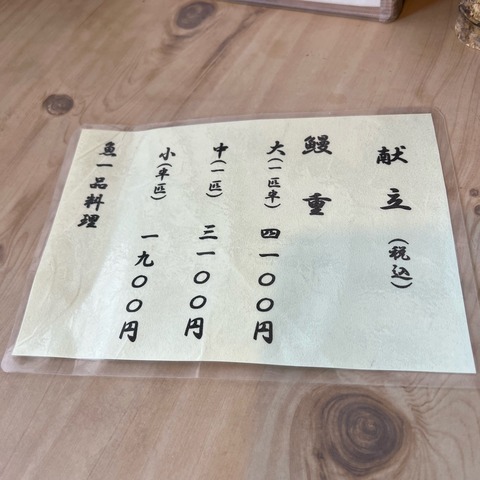 献立(税込)
鰻重
大(一匹半)四一〇〇円
中(一匹)三一〇〇円
小(半匹)一九〇〇円
魚一品料理